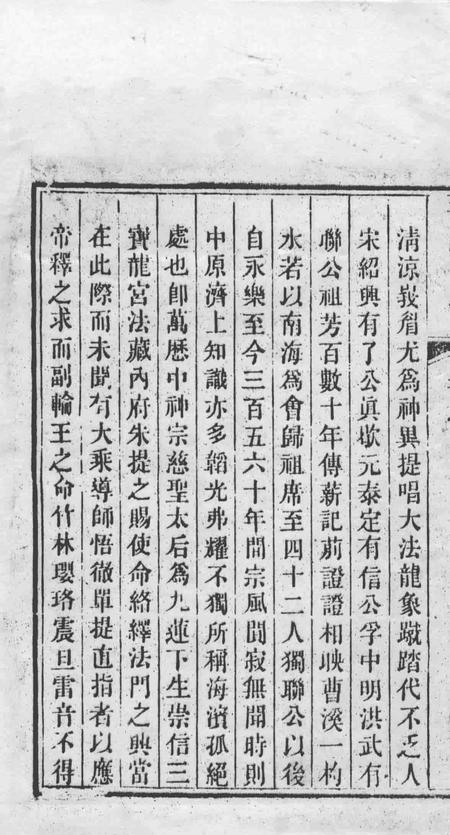 清涼峩眉尤爲神異提唱大法龍象蹴踏代不乏人
宋紹興有了公眞歇元泰定有信公孚中明洪武有
聯公祖芳百數十年傳薪記莂證證相映曹溪一杓
水若以南海爲會歸祖席至四十二人獨聯公以後
自永樂至今三百五六十年間宗風闃寂無聞時則
中原濟上知識亦多韜光弗耀不獨所稱海濵孤絕
處也卽萬歷中神宗慈聖太后爲九蓮下生崇信三
寶龍宮法藏內府朱提之賜使命絡繹法門之興當
在此際而未聞有大乘導師悟徹單提直指者以應
帝釋之求而副輪王之命竹林瓔珞震旦雷音不得